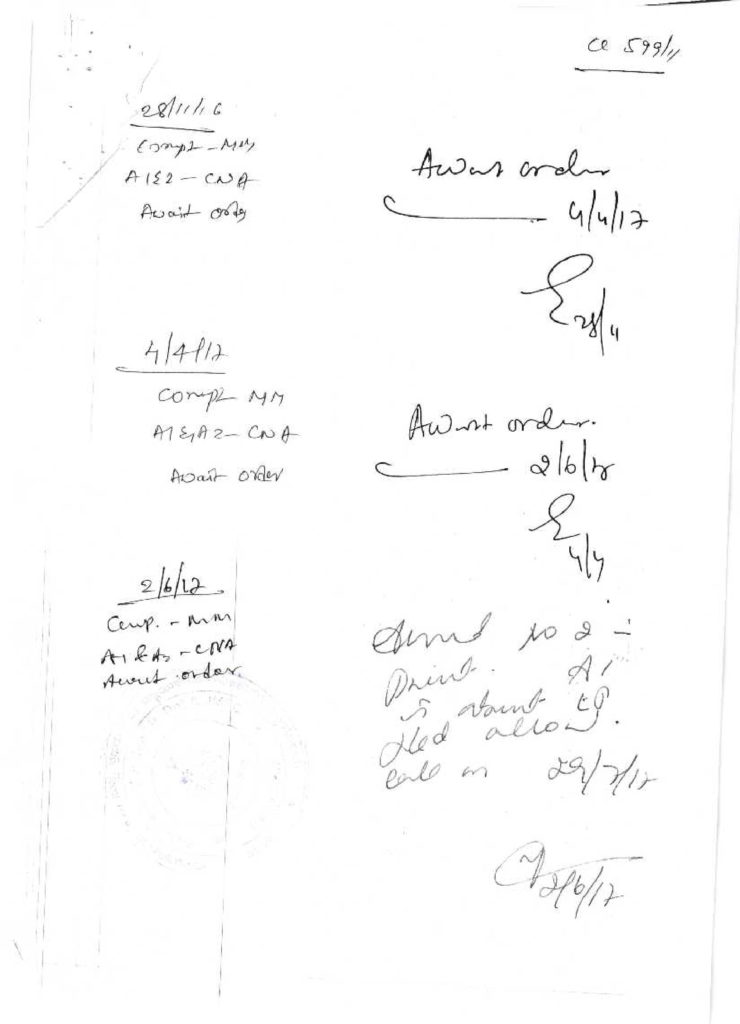 CC 599/11
28/11/16
Compt - MM
A1 & 2 - CNA
Await order
Await order
4/4/17
28/11
4/4/17
Compt MM
A1 & A2 - CNA
Await order
Await order.
2/6/17
4/4
2/6/17
Comp. - MM
A1 & A2 - CNA
Await order.
no 2 -
A1
is absent EP
filed allowed.
call on 29/7/17
2/6/17